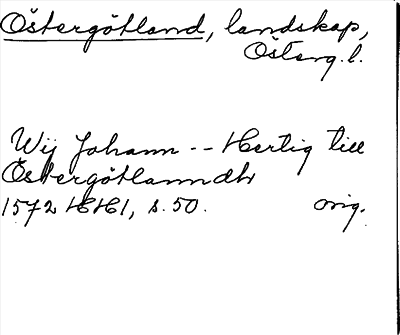 Östergötland, landskap,
Österg. l.
Wij Johann -- Hertig till
Östergötlanndh
1572 HH1, s. 50. orig.